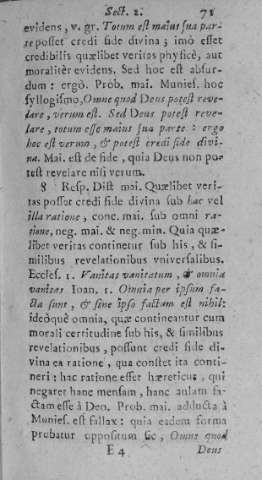 Sect. 2. 71
evidens, v. gr. Totum est maius sua par-
te posset credi fide divina; imò esset
credibilis quælibet veritas physicè, aut
moraliter evidens. Sed hoc est absur-
dum: ergò. Prob. mai. Munies. hoc
syllogismo, Omne quod Deus potest reve-
lare, verum est. Sed Deus potest reve-
lare, totum esse maius sua parte: ergo
hoc est verum, & potest credi fide divi-
na. Mai. est de fide, quia Deus non po-
test revelare nisi verum.
8 Resp. Dist. mai. Quælibet veri-
tas posset credi fide divina sub hac vel
illa ratione, conc. mai. sub omni ra-
tione, neg. mai. & neg. min. Quia quæ-
libet veritas continetur sub his, & si-
milibus revelationibus vniversalibus.
Eccles. 1. Vanitas vanitatum, & omnia
vanitas Ioan. 1. Omnia per ipsum fa-
cta sunt, & sine ipso factum est nihil:
ideòque omnia, quæ continentur cum
morali certitudine sub his, & similibus
revelationibus, possunt credi fide di-
vina ea ratione, qua constet ita conti-
neri: hac ratione esset hæreticus, qui
negaret hanc mensam, hanc aulam fa-
ctam esse à Deo. Prob. mai. adducta à
Munies. est fallax: quia eadem forma
probatur oppositum sic, Omne quod
E 4 Deus